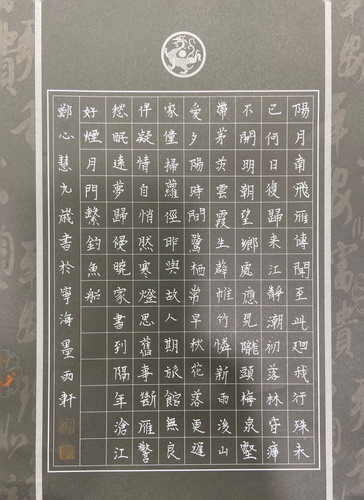 陽月南飛雁傳聞至此廻我行殊未
已何日復歸來江靜潮初落林昏瘴
不開明朝望鄉處應見隴頭梅泉壑
帶茅茨雲霞生薜帷竹憐新雨後山
愛夕陽時閒鷺棲常早秋花落更遲
家僮掃蘿徑昨與故人期旅館無良
伴凝情自悄然寒燈思舊事斷雁警
愁眠遠夢歸侵曉家書到隔年滄江
好煙月門繫釣魚船
鄭心慧九歲書於寧海墨雨軒